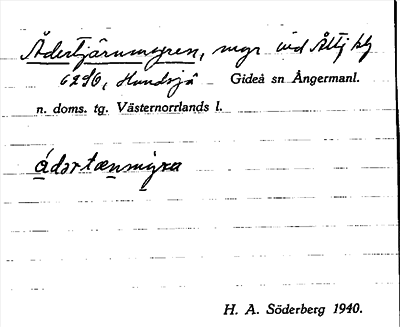 Ådertjärnmyren, myr vid Åtj
6290, Hundsjö Gideå sn Ångermanl.
n. doms. tg. Västernorrlands l.
ádərtænmýra
H. A. Söderberg 1940.